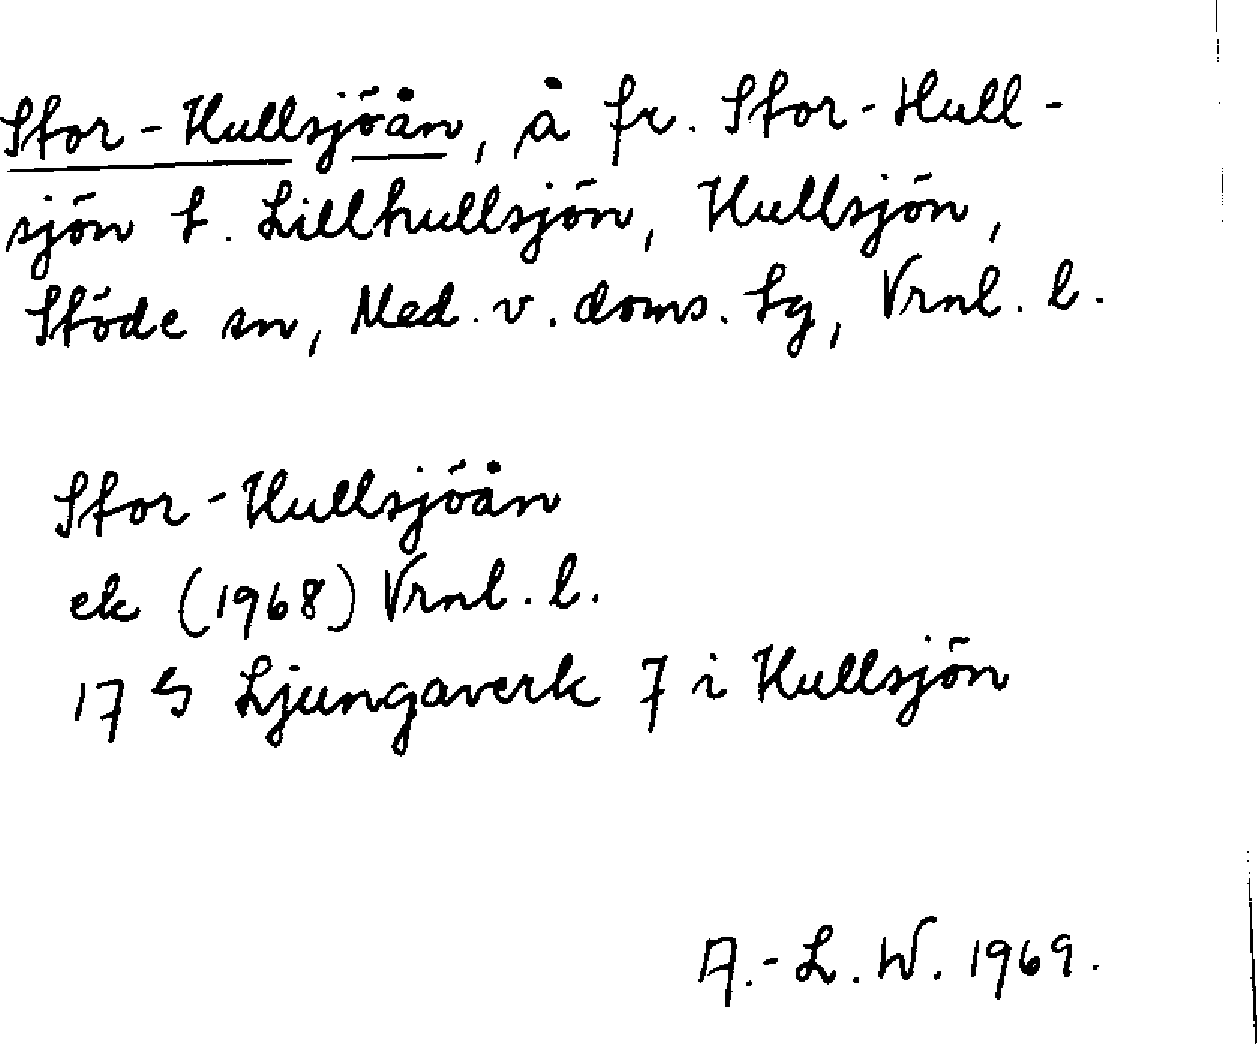 Stor-Hullsjöån, å fr. Stor-Hull-
sjön t. Lillhullsjön, Hullsjön,
Stöde sn, Med. v. doms. tg, Vrnl. l.
Stor-Hullsjöån
ek (1968) Vrnl. l.
17 G Ljungaverk 7 i Hullsjön
A.-L. W. 1969.